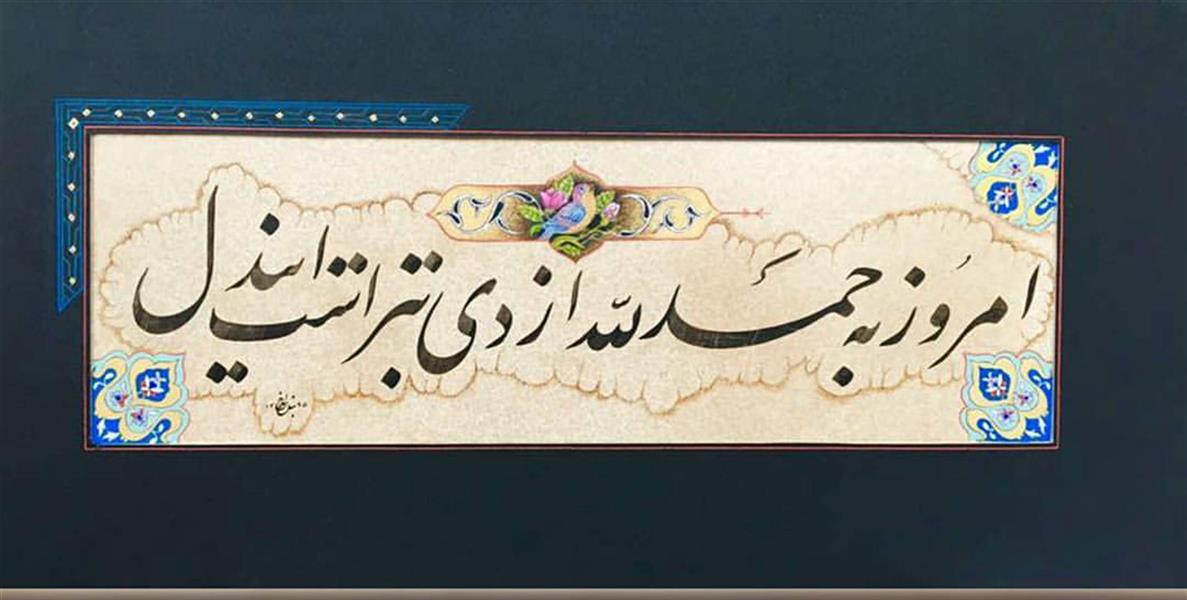 امروز به حمد لله از دی بتر است ایندل